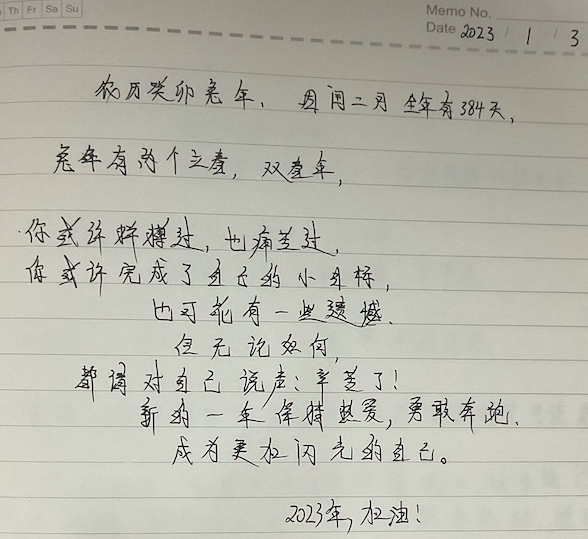 Th Fr Sa Su
Memo No.
Date 2023 / 1 / 3
农历癸卯兔年，因闰二月 全年有384天，
兔年有两个立春，双春年，
你或许拼搏过，也痛苦过，
你或许完成了自己的小目标，
也可能有一些遗憾.
但无论如何，
都请对自己说声：辛苦了！
新的一年保持热爱，勇敢奔跑.
成为更加闪光的自己。
2023年，加油！